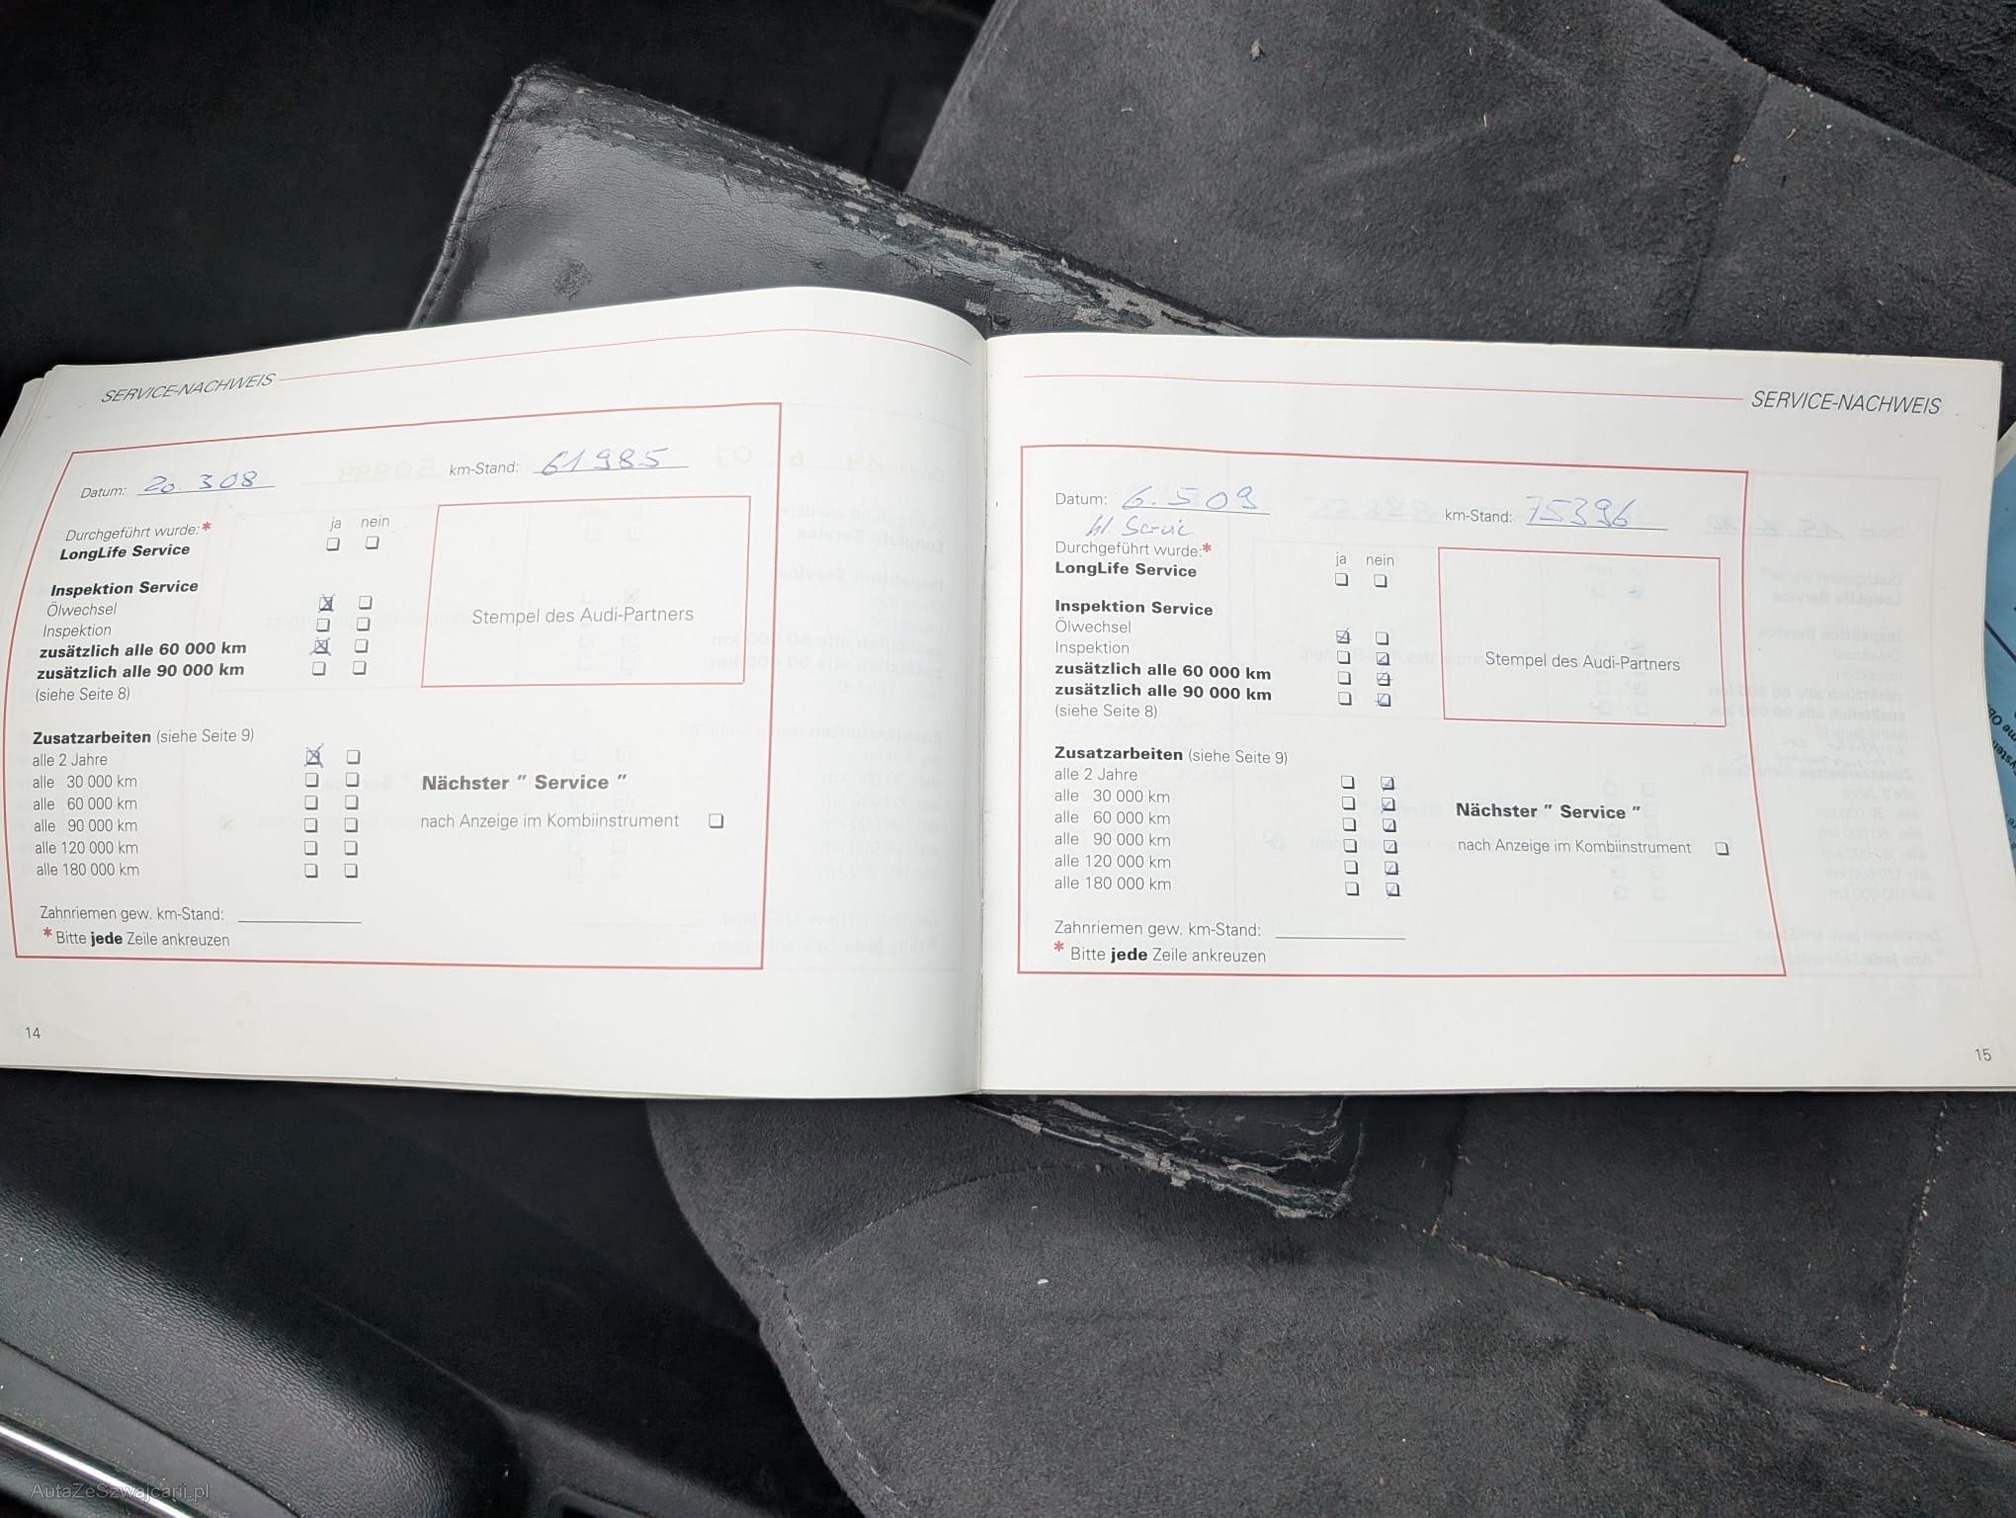 SERVICE-NACHWEIS
Datum: 20. 3 08 km-Stand: 61985
Durchgeführt wurde:* ja nein
LongLife Service
Inspektion Service
Ölwechsel
Inspektion
zusätzlich alle 60 000 km
zusätzlich alle 90 000 km
(siehe Seite 8)
Stempel des Audi-Partners
Zusatzarbeiten (siehe Seite 9)
alle 2 Jahre
alle 30 000 km
alle 60 000 km
alle 90 000 km
alle 120 000 km
alle 180 000 km
Nächster " Service "
nach Anzeige im Kombiinstrument
Zahnriemen gew. km-Stand:
* Bitte jede Zeile ankreuzen
14
SERVICE-NACHWEIS
Datum: 6. 5 09 km-Stand: 75396
kl. Servic
Durchgeführt wurde:* ja nein
LongLife Service
Inspektion Service
Ölwechsel
Inspektion
zusätzlich alle 60 000 km
zusätzlich alle 90 000 km
(siehe Seite 8)
Stempel des Audi-Partners
Zusatzarbeiten (siehe Seite 9)
alle 2 Jahre
alle 30 000 km
alle 60 000 km
alle 90 000 km
alle 120 000 km
alle 180 000 km
Nächster " Service "
nach Anzeige im Kombiinstrument
Zahnriemen gew. km-Stand:
* Bitte jede Zeile ankreuzen
15
AutaZeSzwajcarii.pl